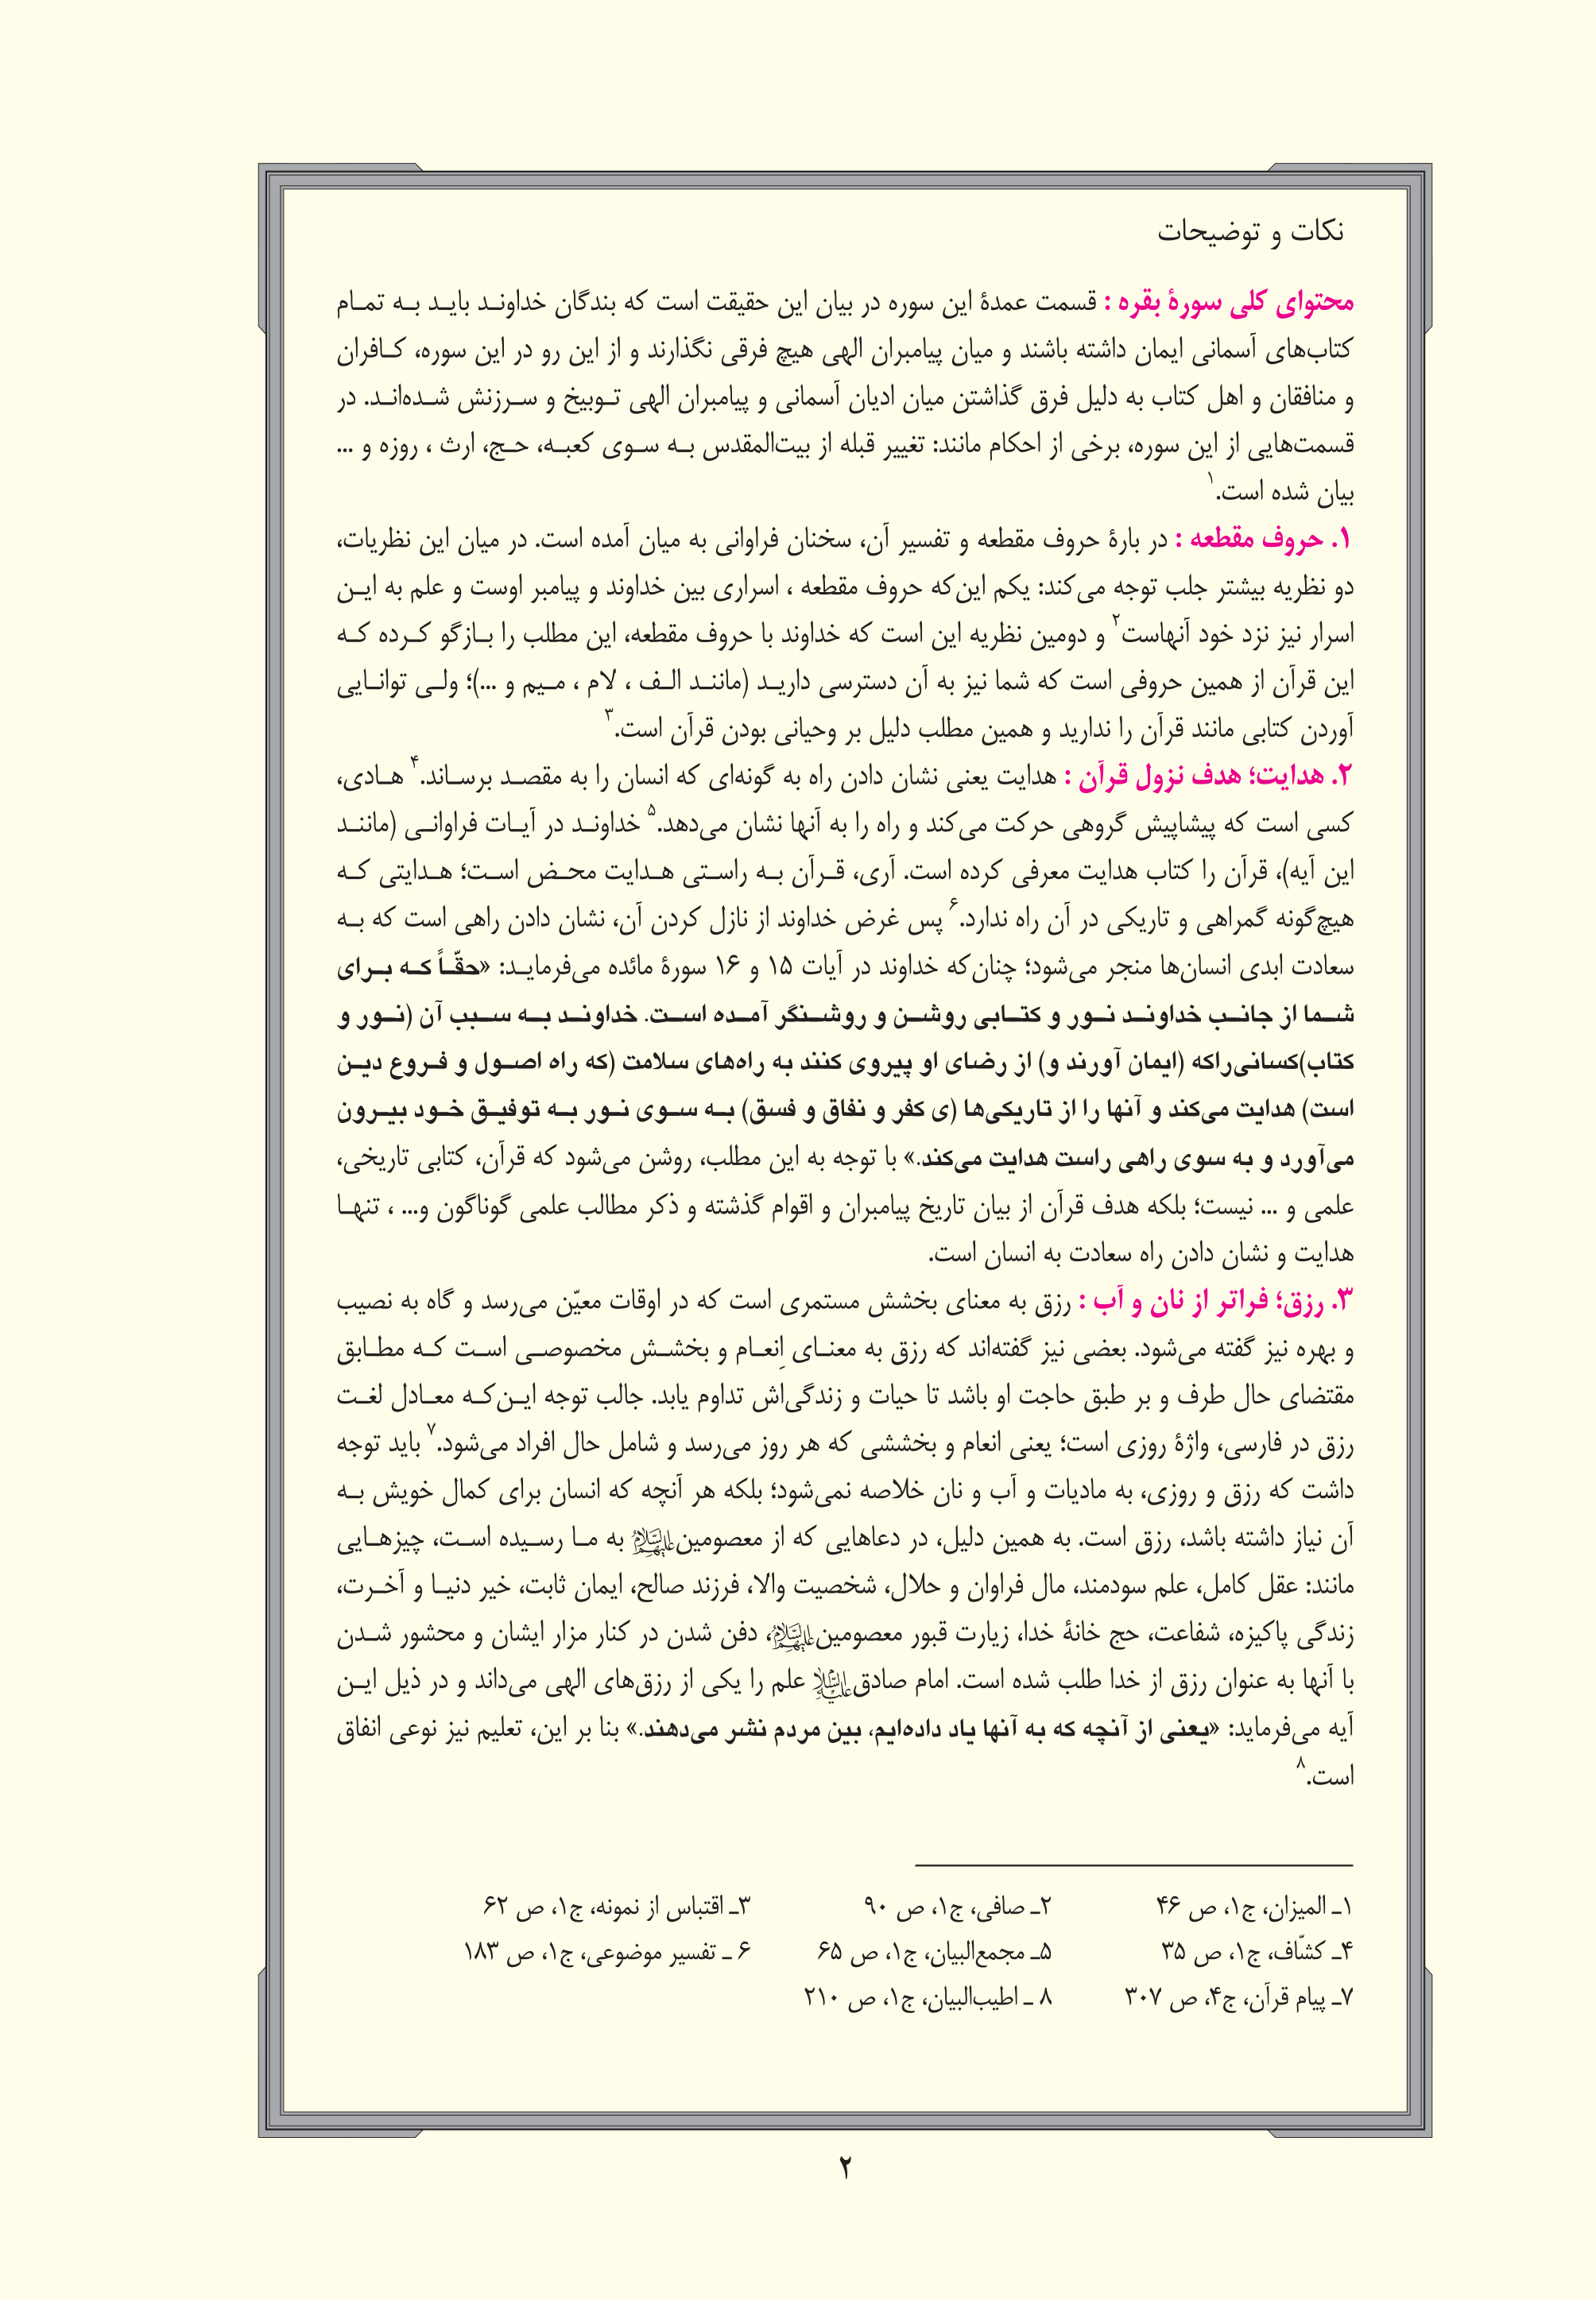 نکات و توضیحات
محتوای کلی سورهٔ بقره : قسمت عمدهٔ این سوره در بیان این حقیقت است که بندگان خداوند باید به تمام
کتاب‌های آسمانی ایمان داشته باشند و میان پیامبران الهی هیچ فرقی نگذارند و از این رو در این سوره، کافران
و منافقان و اهل کتاب به دلیل فرق گذاشتن میان ادیان آسمانی و پیامبران الهی توبیخ و سرزنش شده‌اند. در
قسمت‌هایی از این سوره، برخی از احکام مانند: تغییر قبله از بیت‌المقدس به سوی کعبه، حج، ارث ، روزه و ...
بیان شده است.۱
۱. حروف مقطعه : در بارهٔ حروف مقطعه و تفسیر آن، سخنان فراوانی به میان آمده است. در میان این نظریات،
دو نظریه بیشتر جلب توجه می‌کند: یکم این‌که حروف مقطعه ، اسراری بین خداوند و پیامبر اوست و علم به این
اسرار نیز نزد خود آنهاست۲ و دومین نظریه این است که خداوند با حروف مقطعه، این مطلب را بازگو کرده که
این قرآن از همین حروفی است که شما نیز به آن دسترسی دارید (مانند الف ، لام ، میم و ...)؛ ولی توانایی
آوردن کتابی مانند قرآن را ندارید و همین مطلب دلیل بر وحیانی بودن قرآن است.۳
۲. هدایت؛ هدف نزول قرآن : هدایت یعنی نشان دادن راه به گونه‌ای که انسان را به مقصد برساند.۴ هادی،
کسی است که پیشاپیش گروهی حرکت می‌کند و راه را به آنها نشان می‌دهد.۵ خداوند در آیات فراوانی (مانند
این آیه)، قرآن را کتاب هدایت معرفی کرده است. آری، قرآن به راستی هدایت محض است؛ هدایتی که
هیچ‌گونه گمراهی و تاریکی در آن راه ندارد.۶ پس غرض خداوند از نازل کردن آن، نشان دادن راهی است که به
سعادت ابدی انسان‌ها منجر می‌شود؛ چنان‌که خداوند در آیات ۱۵ و ۱۶ سورهٔ مائده می‌فرماید: «حقّاً که برای
شما از جانب خداوند نور و کتابی روشن و روشنگر آمده است. خداوند به سبب آن (نور و
کتاب)کسانی‌راکه (ایمان آورند و) از رضای او پیروی کنند به راه‌های سلامت (که راه اصول و فروع دین
است) هدایت می‌کند و آنها را از تاریکی‌ها (ی کفر و نفاق و فسق) به سوی نور به توفیق خود بیرون
می‌آورد و به سوی راهی راست هدایت می‌کند.» با توجه به این مطلب، روشن می‌شود که قرآن، کتابی تاریخی،
علمی و ... نیست؛ بلکه هدف قرآن از بیان تاریخ پیامبران و اقوام گذشته و ذکر مطالب علمی گوناگون و... ، تنها
هدایت و نشان دادن راه سعادت به انسان است.
۳. رزق؛ فراتر از نان و آب : رزق به معنای بخشش مستمری است که در اوقات معیّن می‌رسد و گاه به نصیب
و بهره نیز گفته می‌شود. بعضی نیز گفته‌اند که رزق به معنای اِنعام و بخشش مخصوصی است که مطابق
مقتضای حال طرف و بر طبق حاجت او باشد تا حیات و زندگی‌اش تداوم یابد. جالب توجه این‌که معادل لغت
رزق در فارسی، واژهٔ روزی است؛ یعنی انعام و بخششی که هر روز می‌رسد و شامل حال افراد می‌شود.۷ باید توجه
داشت که رزق و روزی، به مادیات و آب و نان خلاصه نمی‌شود؛ بلکه هر آنچه که انسان برای کمال خویش به
آن نیاز داشته باشد، رزق است. به همین دلیل، در دعاهایی که از معصومین علیهم السّلام به ما رسیده است، چیزهایی
مانند: عقل کامل، علم سودمند، مال فراوان و حلال، شخصیت والا، فرزند صالح، ایمان ثابت، خیر دنیا و آخرت،
زندگی پاکیزه، شفاعت، حج خانهٔ خدا، زیارت قبور معصومین علیهم السّلام، دفن شدن در کنار مزار ایشان و محشور شدن
با آنها به عنوان رزق از خدا طلب شده است. امام صادق علیه السّلام علم را یکی از رزق‌های الهی می‌داند و در ذیل این
آیه می‌فرماید: «یعنی از آنچه که به آنها یاد داده‌ایم، بین مردم نشر می‌دهند.» بنا بر این، تعلیم نیز نوعی انفاق
است.۸
۱ـ المیزان، ج۱، ص ۴۶ ۲ـ صافی، ج۱، ص ۹۰ ۳ـ اقتباس از نمونه، ج۱، ص ۶۲
۴ـ کشّاف، ج۱، ص ۳۵ ۵ـ مجمع‌البیان، ج۱، ص ۶۵ ۶ ـ تفسیر موضوعی، ج۱، ص ۱۸۳
۷ـ پیام قرآن، ج۴، ص ۳۰۷ ۸ ـ اطیب‌البیان، ج۱، ص ۲۱۰
۲